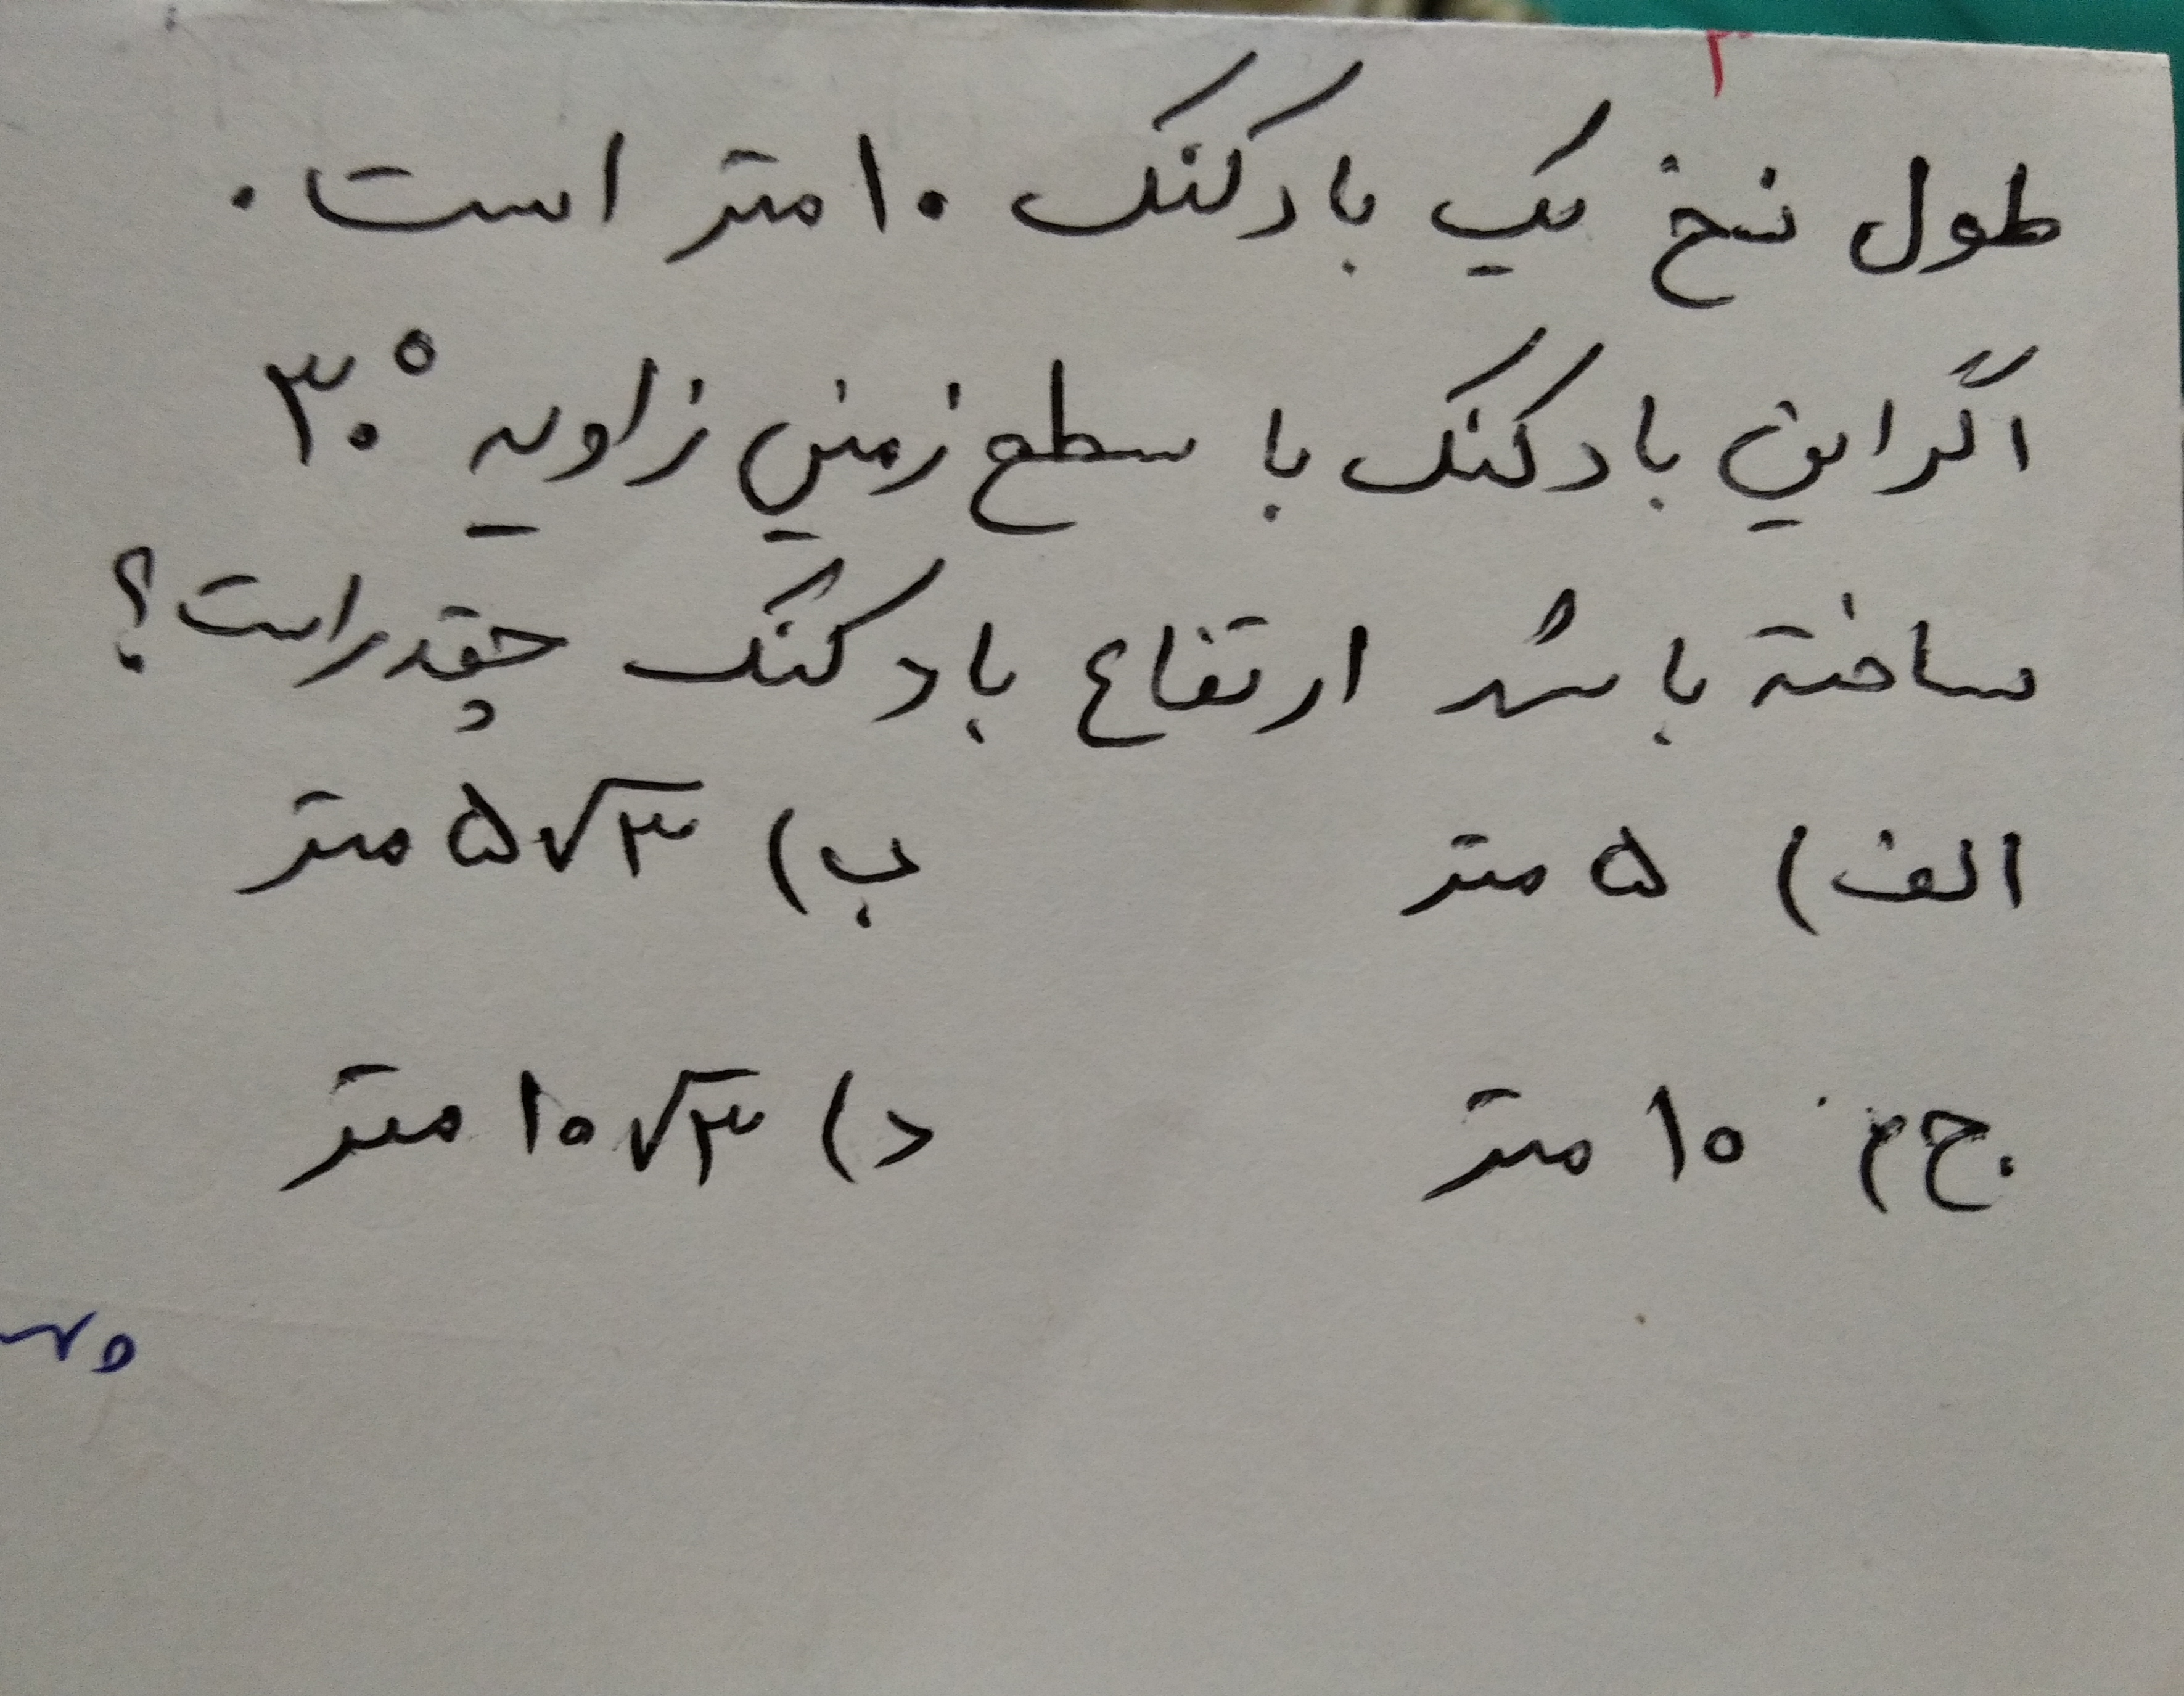 ۳
طول نخ یک بادکنک ۱۰ متر است.
اگر این بادکنک با سطح زمین زاویه ۳۰°
ساخته باشد ارتفاع بادکنک چقدر است؟
الف) ۵ متر ب) ۵√۳ متر
ج) ۱۰ متر د) ۱۰√۳ متر